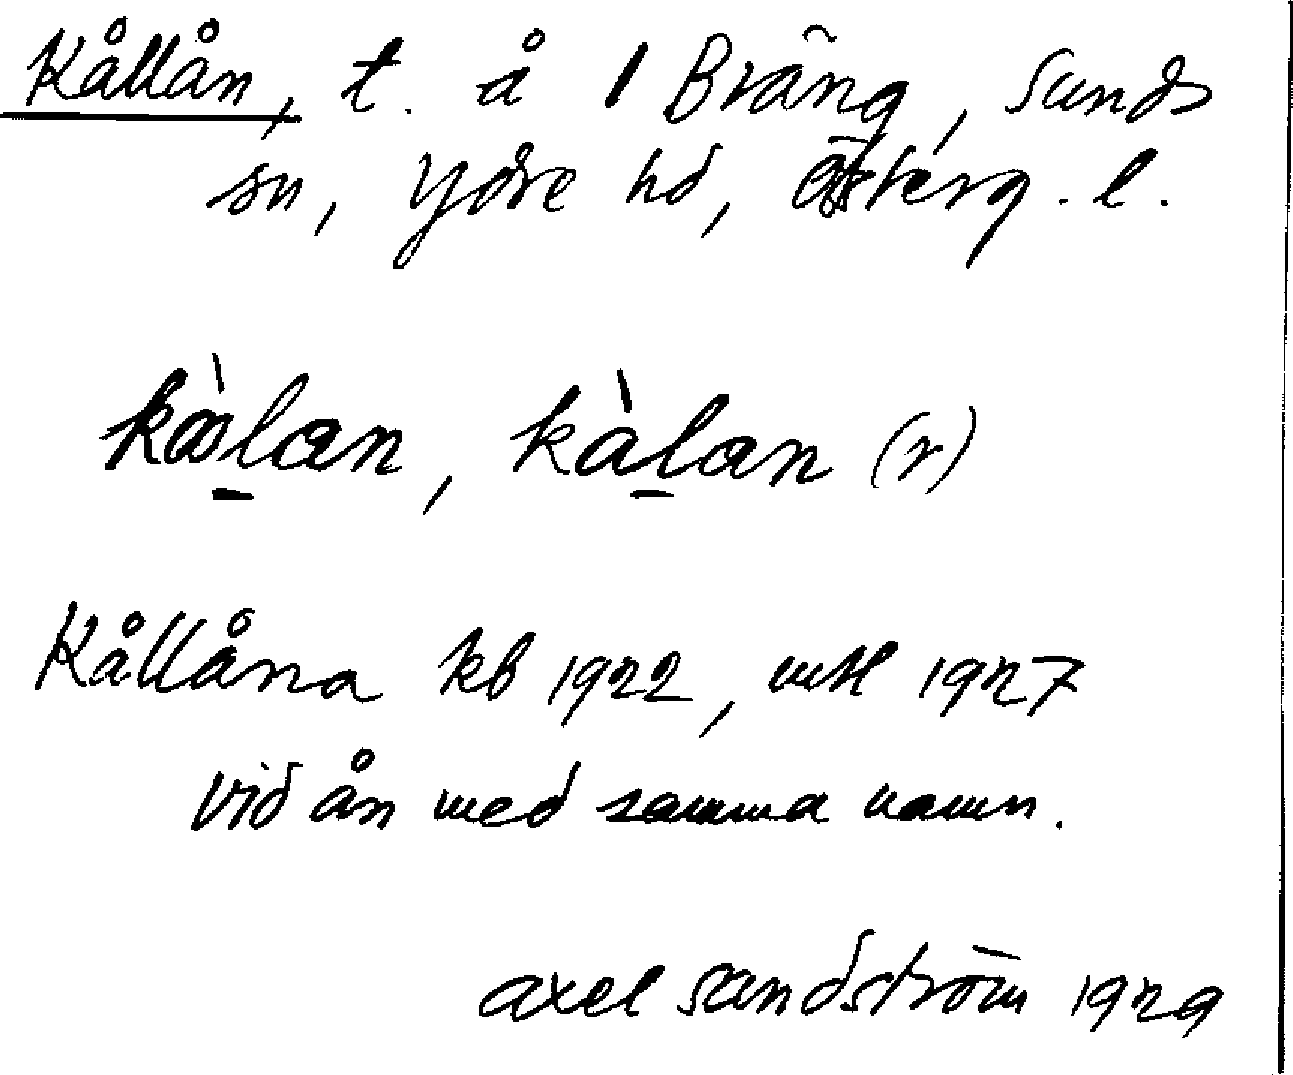 Kållån, t. å 1 Bräng, Sunds
sn, Ydre hd, Österg. l.
kålan, kàlan (r)
Kållåna kb 1922, mtl 1927
vid ån med samma namn.
axel sandström 1929